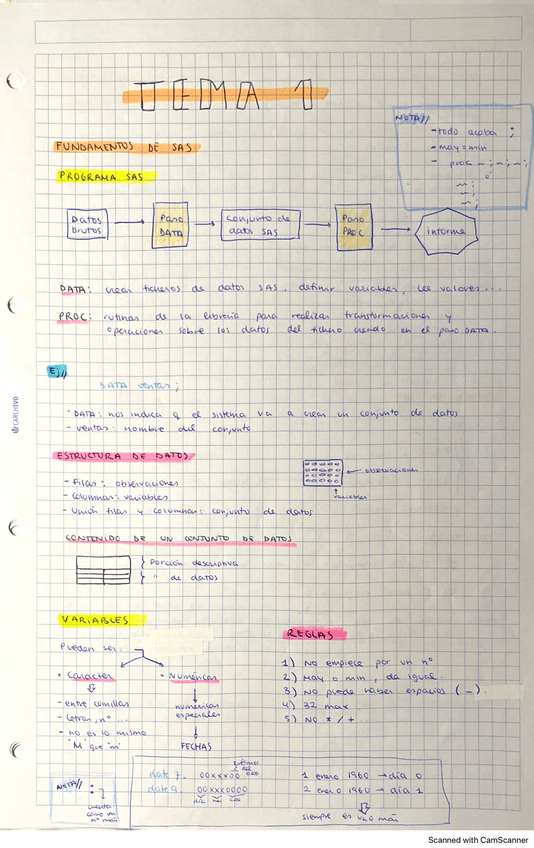 TEMA 1
NOTA//
- todo acaba ;
- may = min
- proc ~ ; ~ ; ~ ;
o
~ ;
~ ;
~ ;
FUNDAMENTOS DE SAS
PROGRAMA SAS
Datos brutos
Paso DATA
conjunto de datos SAS
Paso PROC
informe
DATA: crear ficheros de datos SAS. definir variables, lee valores...
PROC: rutinas de la librería para realizar transformaciones y
operaciones sobre los datos del fichero creado en el paso DATA.
Ej//
DATA ventas;
- DATA: nos indica q el sistema va a crear un conjunto de datos
- ventas: nombre del conjunto
CARCHIVO
ESTRUCTURA DE DATOS
- Filas: observaciones
- Columnas: variables
- Unión filas y columnas: conjunto de datos
observaciones
variables
CONTENIDO DE UN CONJUNTO DE DATOS
} Porción descriptiva
} " de datos
VARIABLES
Pueden ser:
• Caracter
- entre comillas
- letras, nº ...
- no es lo mismo
"M" que "m"
• Numéricas
numéricas
especiales
FECHAS
REGLAS
1) No empiece por un nº
2) May o min, da igual.
3) No puede haber espacios (_)
4) 32 max
5) NO * / +
NOTA//
: cuenta
como un
nº más
date 7. 00xxx00
date 9. 00xxx0000
día mes
1 enero 1960 → día 0
2 enero 1960 → día 1
siempre es uno más
Scanned with CamScanner